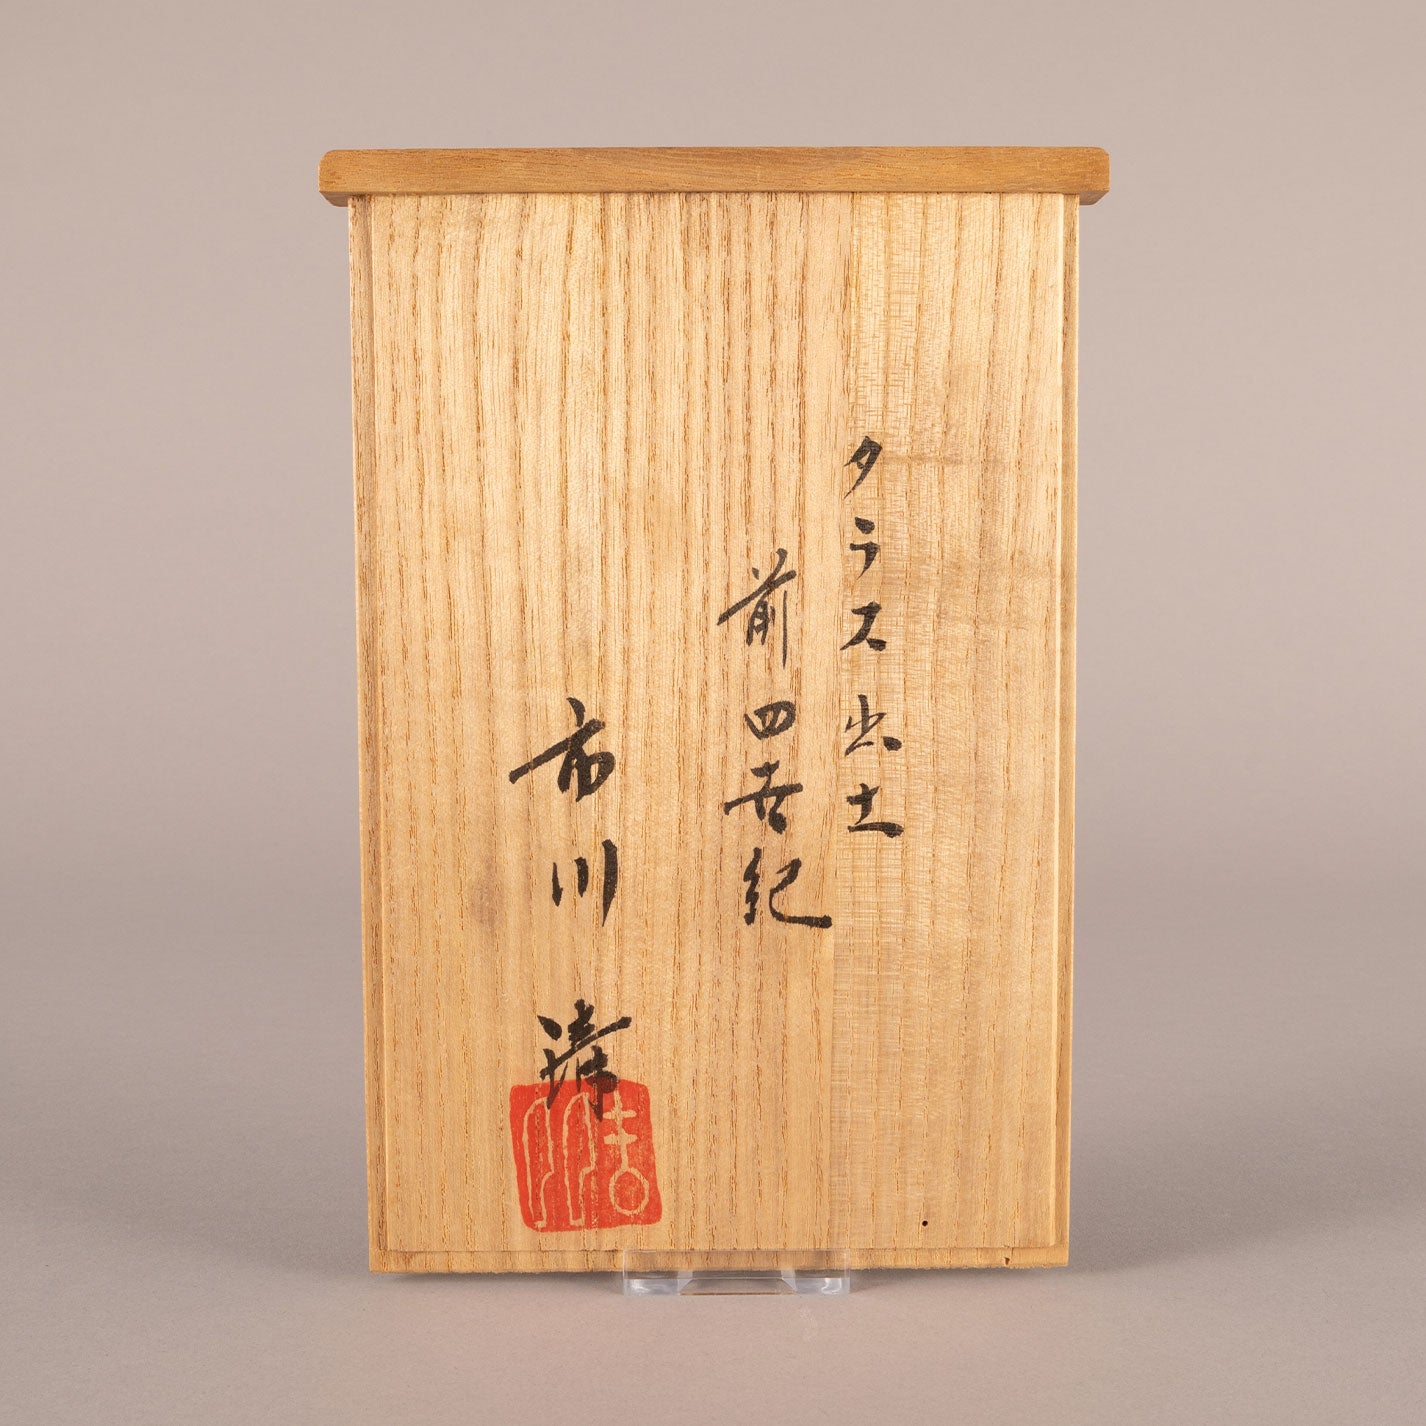 タラス出土
前四世紀
市川清